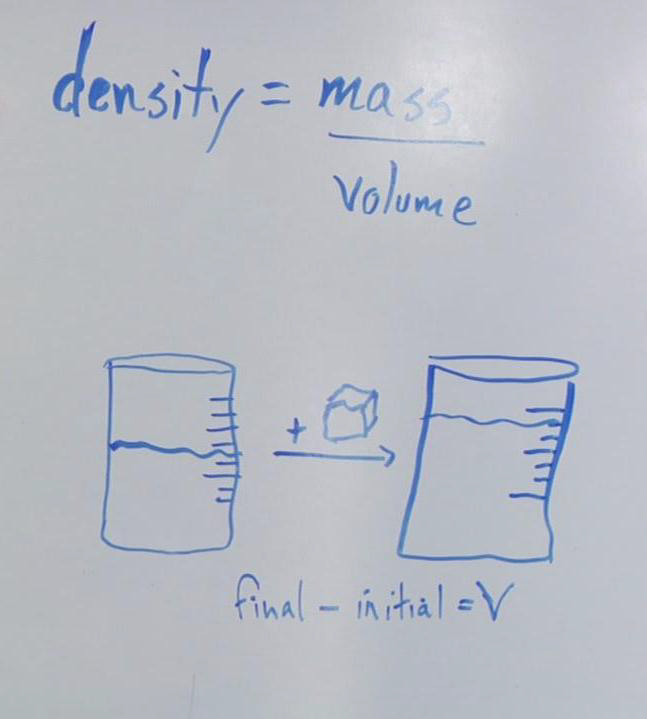 density = mass
volume
+
final - initial = V